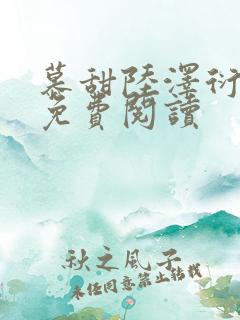 慕甜陸澤衍
免費閱讀
秋之風子
未经同意禁止转载